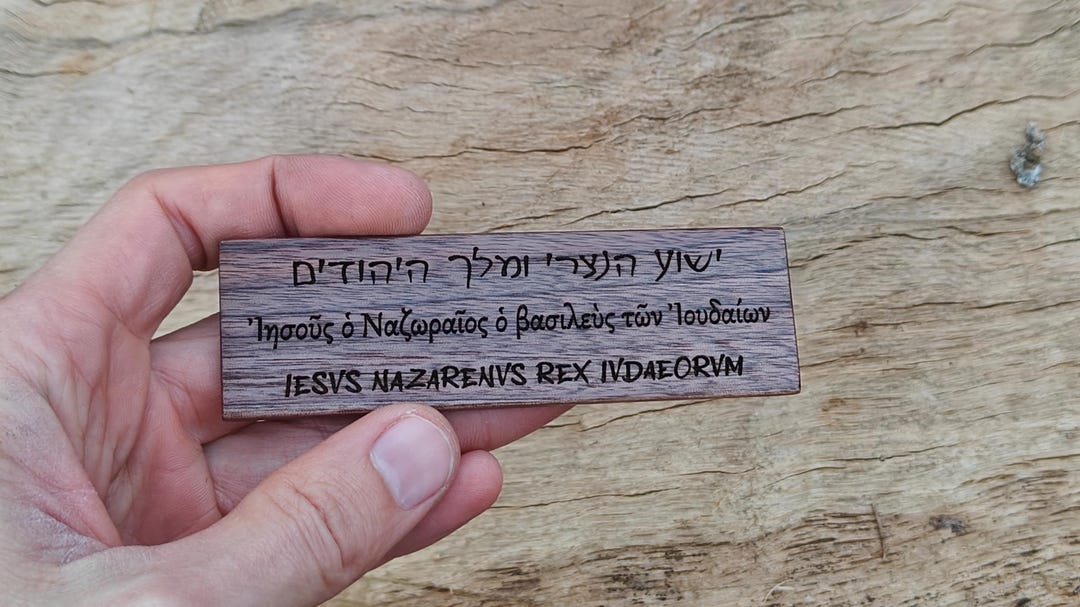 ישוע הנצרי ומלך היהודים
Ἰησοῦς ὁ Ναζωραῖος ὁ βασιλεὺς τῶν Ἰουδαίων
IESVS NAZARENVS REX IVDAEORVM